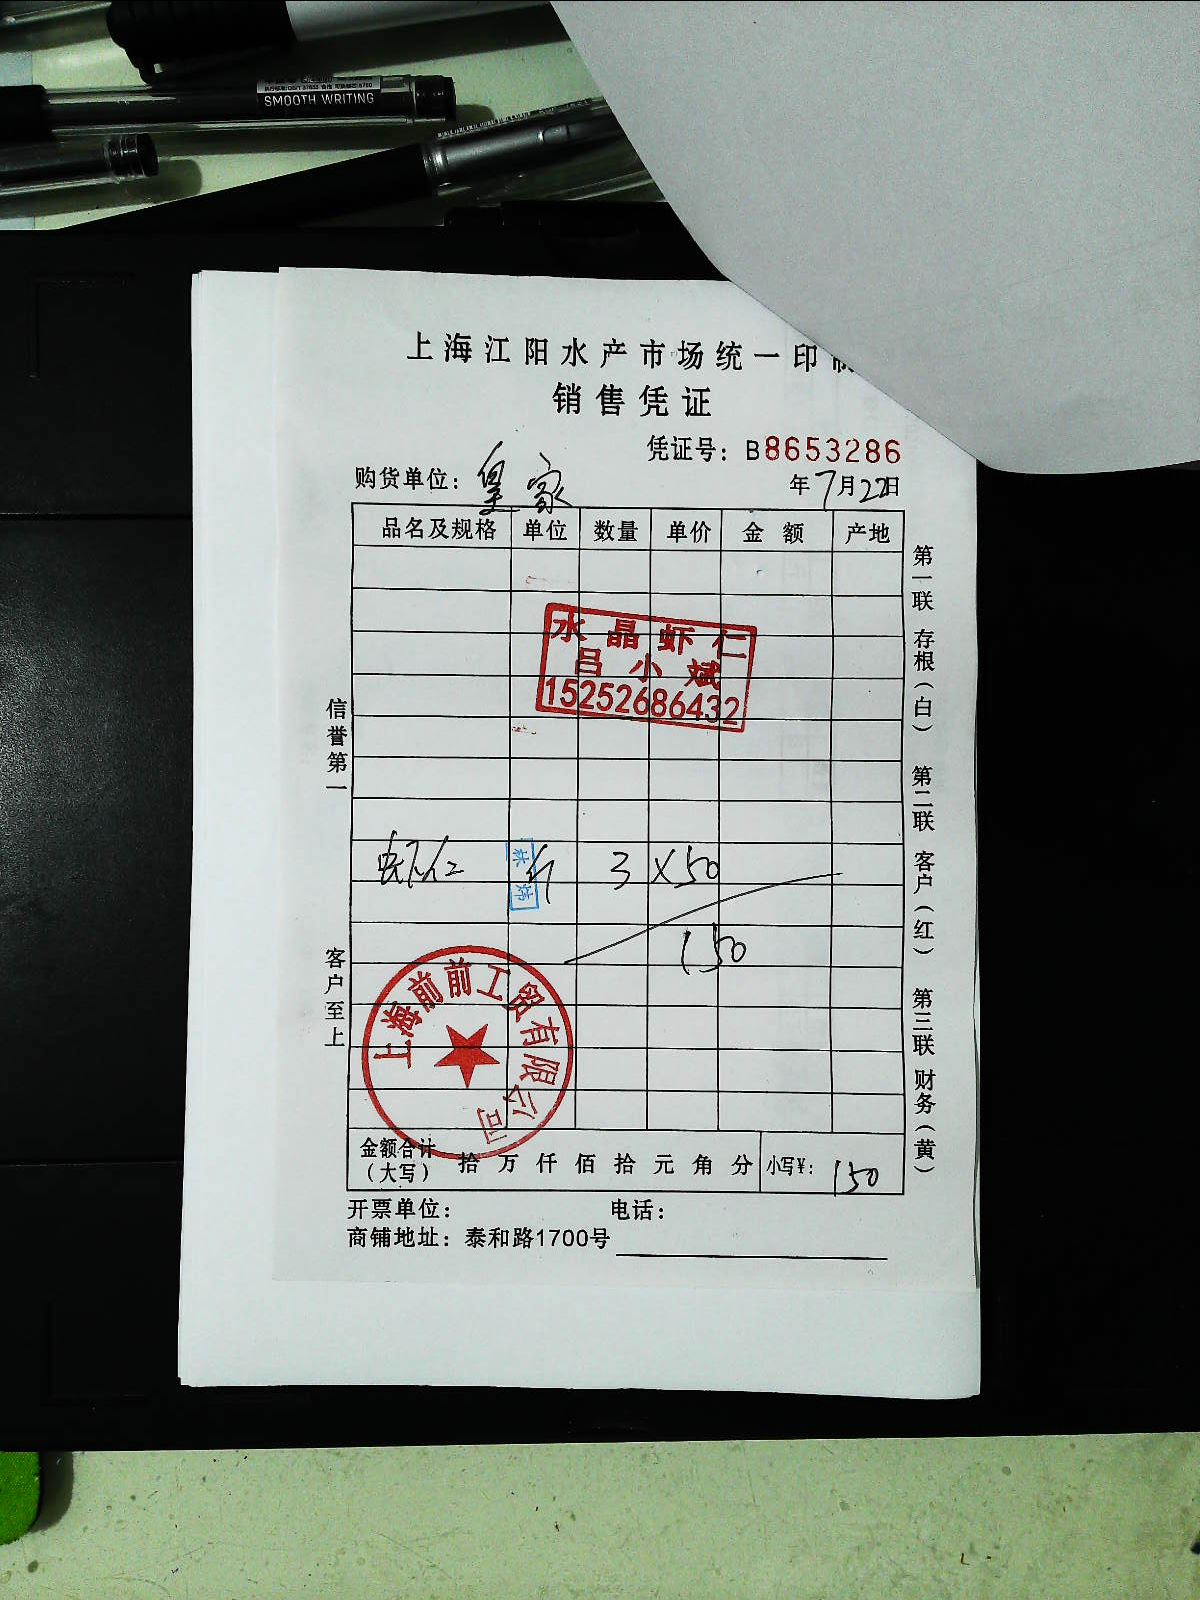 SMOOTH WRITING
上海江阳水产市场统一印制
销售凭证
凭证号：B8653286
购货单位：皇家
年7月22日
品名及规格 单位 数量 单价 金额 产地
水晶虾仁
吕小斌
15252686432
虾仁 斤 3 ×50
150
上海前前工贸有限公司
金额合计（大写） 拾万仟佰拾元角分 小写¥：150
开票单位： 电话：
商铺地址：泰和路1700号
信誉第一 客户至上
第一联 存根（白） 第二联 客户（红） 第三联 财务（黄）